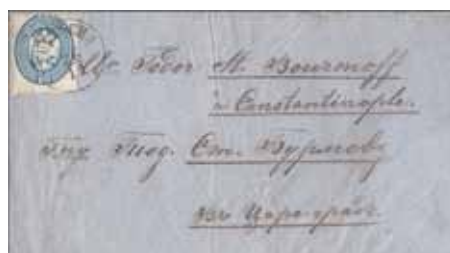 Mr Todor St. Bourmoff
à Constantinople.
Тод. Ст. Бурмову
въ Цариградъ